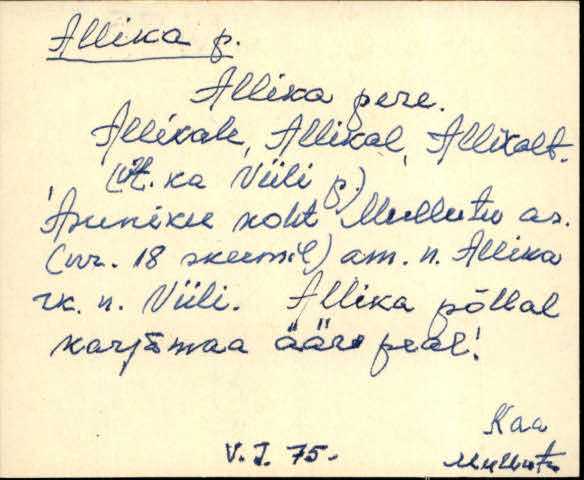 Allika p.
Allika pere.
Allikale, Allikal, Allikalt.
(vt. ka Viili p.)
Asuniku koht Mullutu as.
(nr. 18 skeemil) am. n. Allika
rk. n. Viili. Allika põllal
karjamaa ääre peal!
Kaa
V. J. 75. Mullutu